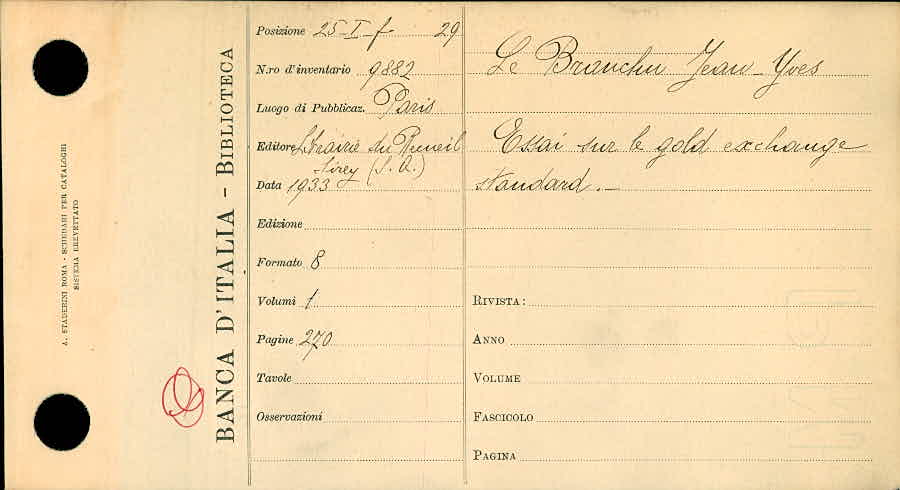 A. STADERINI ROMA - SCHEDARI PER CATALOGHI
SISTEMA BREVETTATO
BANCA D'ITALIA - BIBLIOTECA
Posizione 25-I-f- 29
N.ro d'inventario 9882
Luogo di Pubblicaz. Paris
Editore Librairie du Recueil
Sirey (S.A.)
Data 1933
Edizione
Formato 8
Volumi 1
Pagine 270
Tavole
Osservazioni
Le Branchu Jean-Yves
Essai sur le gold exchange
standard.-
RIVISTA:
ANNO
VOLUME
FASCICOLO
PAGINA